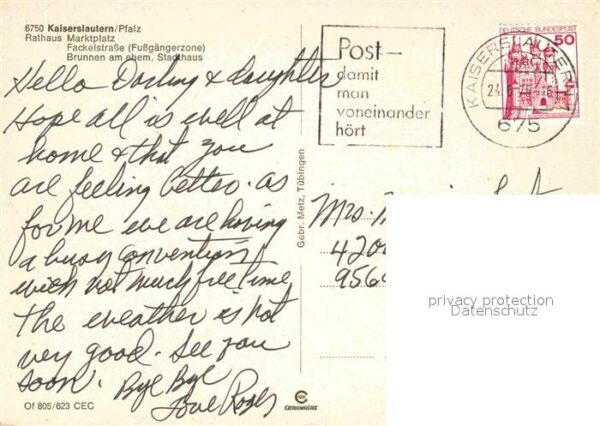 6750 Kaiserslautern/Pfalz
Rathaus Marktplatz
Fackelstraße (Fußgängerzone)
Brunnen am ehem. Stadthaus
Hello Darling & daughter
Hope all is well at
home & that you
are feeling better. as
for me we are having
a busy convention
with not much free time
The weather is not
very good. See you
soon. Bye Bye
Love Roger
Of 805/623 CEC
Gebr. Metz, Tübingen
CHROMOLUX
Post-
damit
man
voneinander
hört
DEUTSCHE BUNDESPOST
50
KAISERSLAUTERN
675
Mrs.
4200
9564
privacy protection
Datenschutz